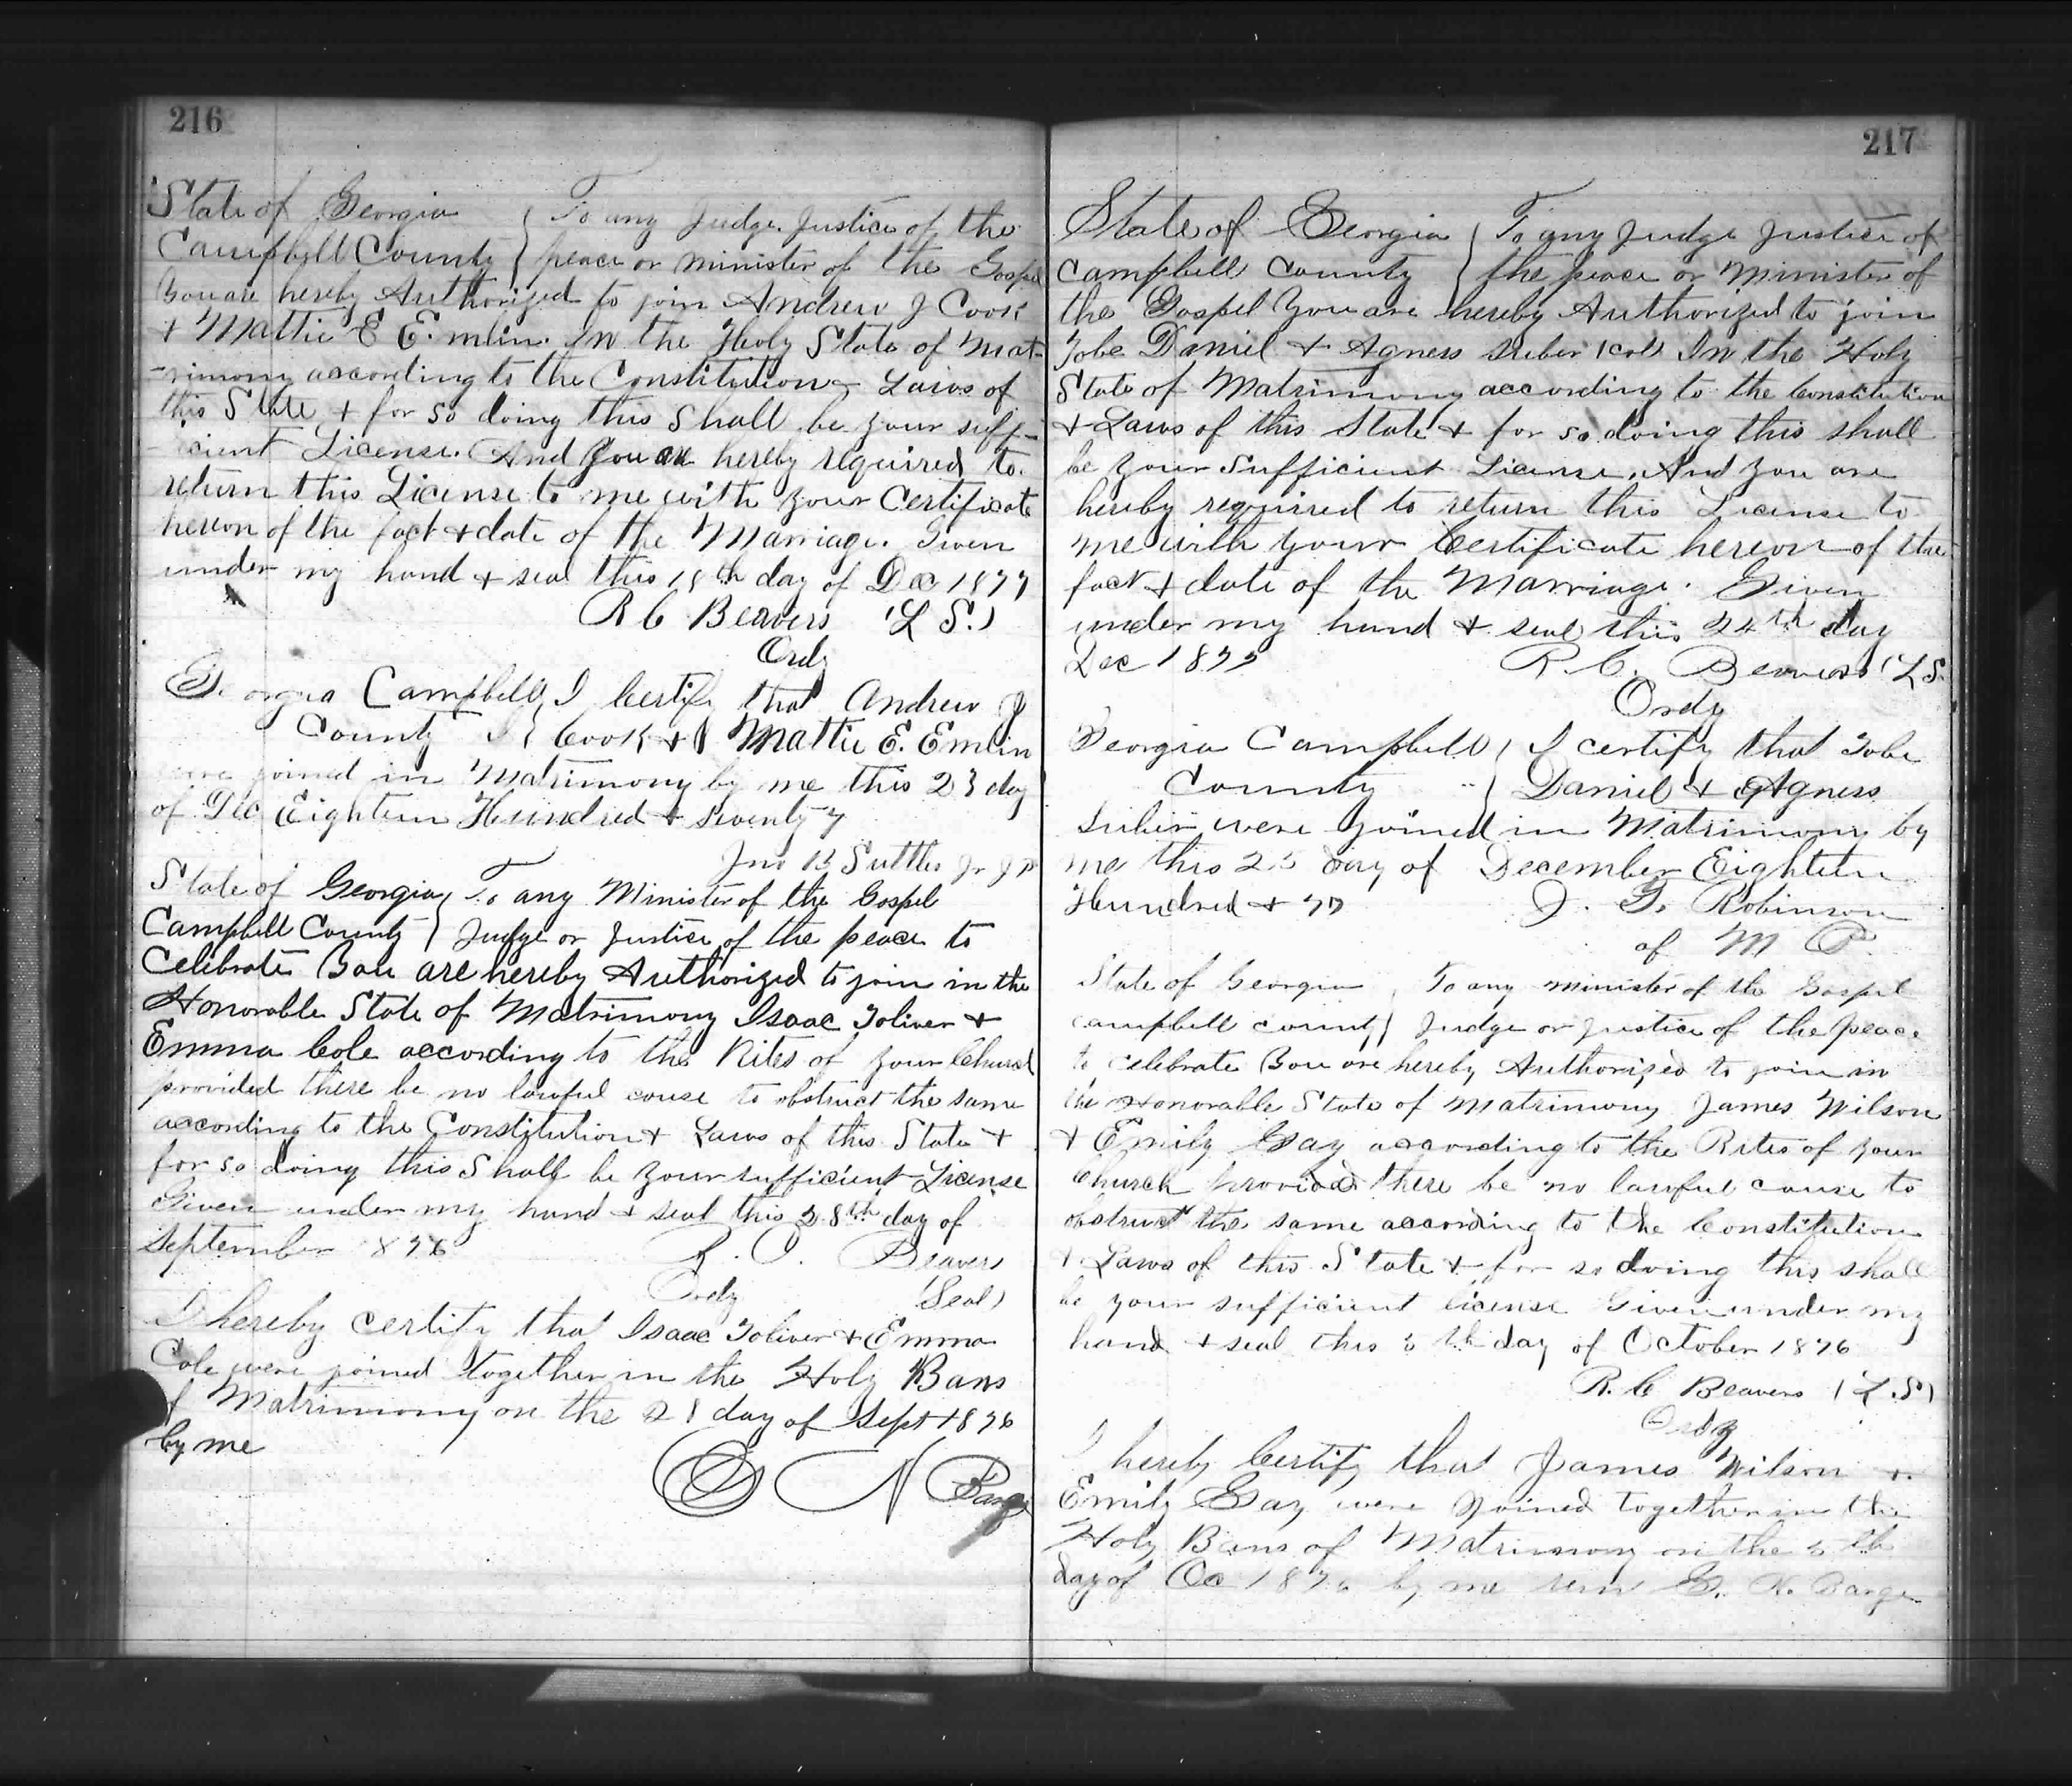 216
State of Georgia } To any Judge Justice of the
Campbell County } peace or minister of the Gospel
You are hereby Authorized to join Andrew J Cook
+ Mattie E Emlin. In the Holy State of Mat-
-rimony according to the Constitution + Laws of
this State + for so doing this shall be your suff-
icient License. And you are hereby required to
return this License to me with your Certificate
hereon of the fact + date of the Marriage. Given
under my hand + seal this 18th day of Dec 1877
R C Beavers (L S.)
Ordy
Georgia Campbell } I Certify that Andrew J
County } Cook + Mattie E. Emlin
were joined in Matrimony by me this 23 day
of Dec Eighteen Hundred + Seventy 7
Jno B Suttles Jr J P
State of Georgia } To any Minister of the Gospel
Campbell County } Judge or Justice of the peace to
Celebrate You are hereby Authorized to join in the
Honorable State of Matrimony Isaac Toliver +
Emma Cole according to the Rites of your Church
provided there be no lawful cause to obstruct the same
according to the Constitution + Laws of this State +
for so doing this Shall be your sufficient License
Given under my hand + seal this 28th day of
September 1876 R. C. Beavers
Ordy (Seal)
I hereby certify that Isaac Toliver + Emma
Cole were joined together in the Holy Bans
of Matrimony on the 28 day of Sept 1876
by me
G N Barge
217
State of Georgia } To any Judge Justice of
Campbell County } the peace or Minister of
the Gospel You are hereby Authorized to join
Tobe Daniel + Agness Suber (col) In the Holy
State of Matrimony according to the Constitution
+ Laws of this State + for so doing this shall
be your Sufficient License. And you are
hereby required to return this License to
me with your Certificate hereon of the
fact + date of the Marriage. Given
under my hand + seal this 24th day
Dec 1877 R. C. Beavers (L S.
Ordy
Georgia Campbell } I certify that Tobe
County } Daniel + Agness
Suber were joined in Matrimony by
me this 25 day of December Eighteen
Hundred + 77 J. T. Robinson
of M P.
State of Georgia } To any minister of the Gospel
Campbell County } Judge or Justice of the peace
to celebrate You are hereby Authorized to join in
the Honorable State of Matrimony James Wilson
+ Emily Gay according to the Rites of your
Church provided there be no lawful cause to
obstruct the same according to the Constitution
+ Laws of this State + for so doing this shall
be your sufficient license Given under my
hand + seal this th day of October 1876
R. C Beavers (L.S)
Ordy
I hereby Certify that James Wilson +
Emily Gay were Joined together in the
Holy Bans of Matrimony on the th
day of Oc 1876 by me G. N. Barge